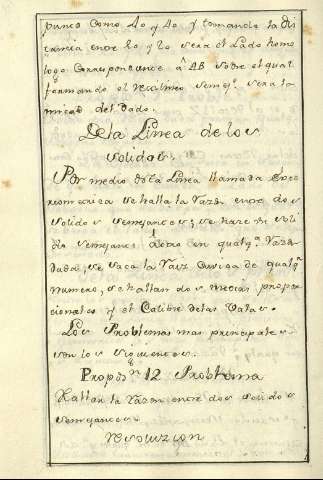 puncs como 40 y 40 y tomando la dis
tancia entre lo y lo sera el Lado homo
logo Correspondence á AB sobre el qual
formando el rectilineo semejᵉ. sera la
mitad del dado.
De la Linea de los
solidos.
Por medio de la Linea llamada Este
reometrica se halla la razon entre dos
solidos semejantes, se haze un soli
do semejante á otro en qualqᵃ. razon
dada, se saca la raiz cuvica de qualqᵃ.
numero, se hallan dos medias propor
cionales y el Calibre de las Valas.
Los Problemas mas principales
son los siguientes.
Proposⁿ. 12 Problema
Hallar la razon entre dos solidos
semejantes
resoluzion